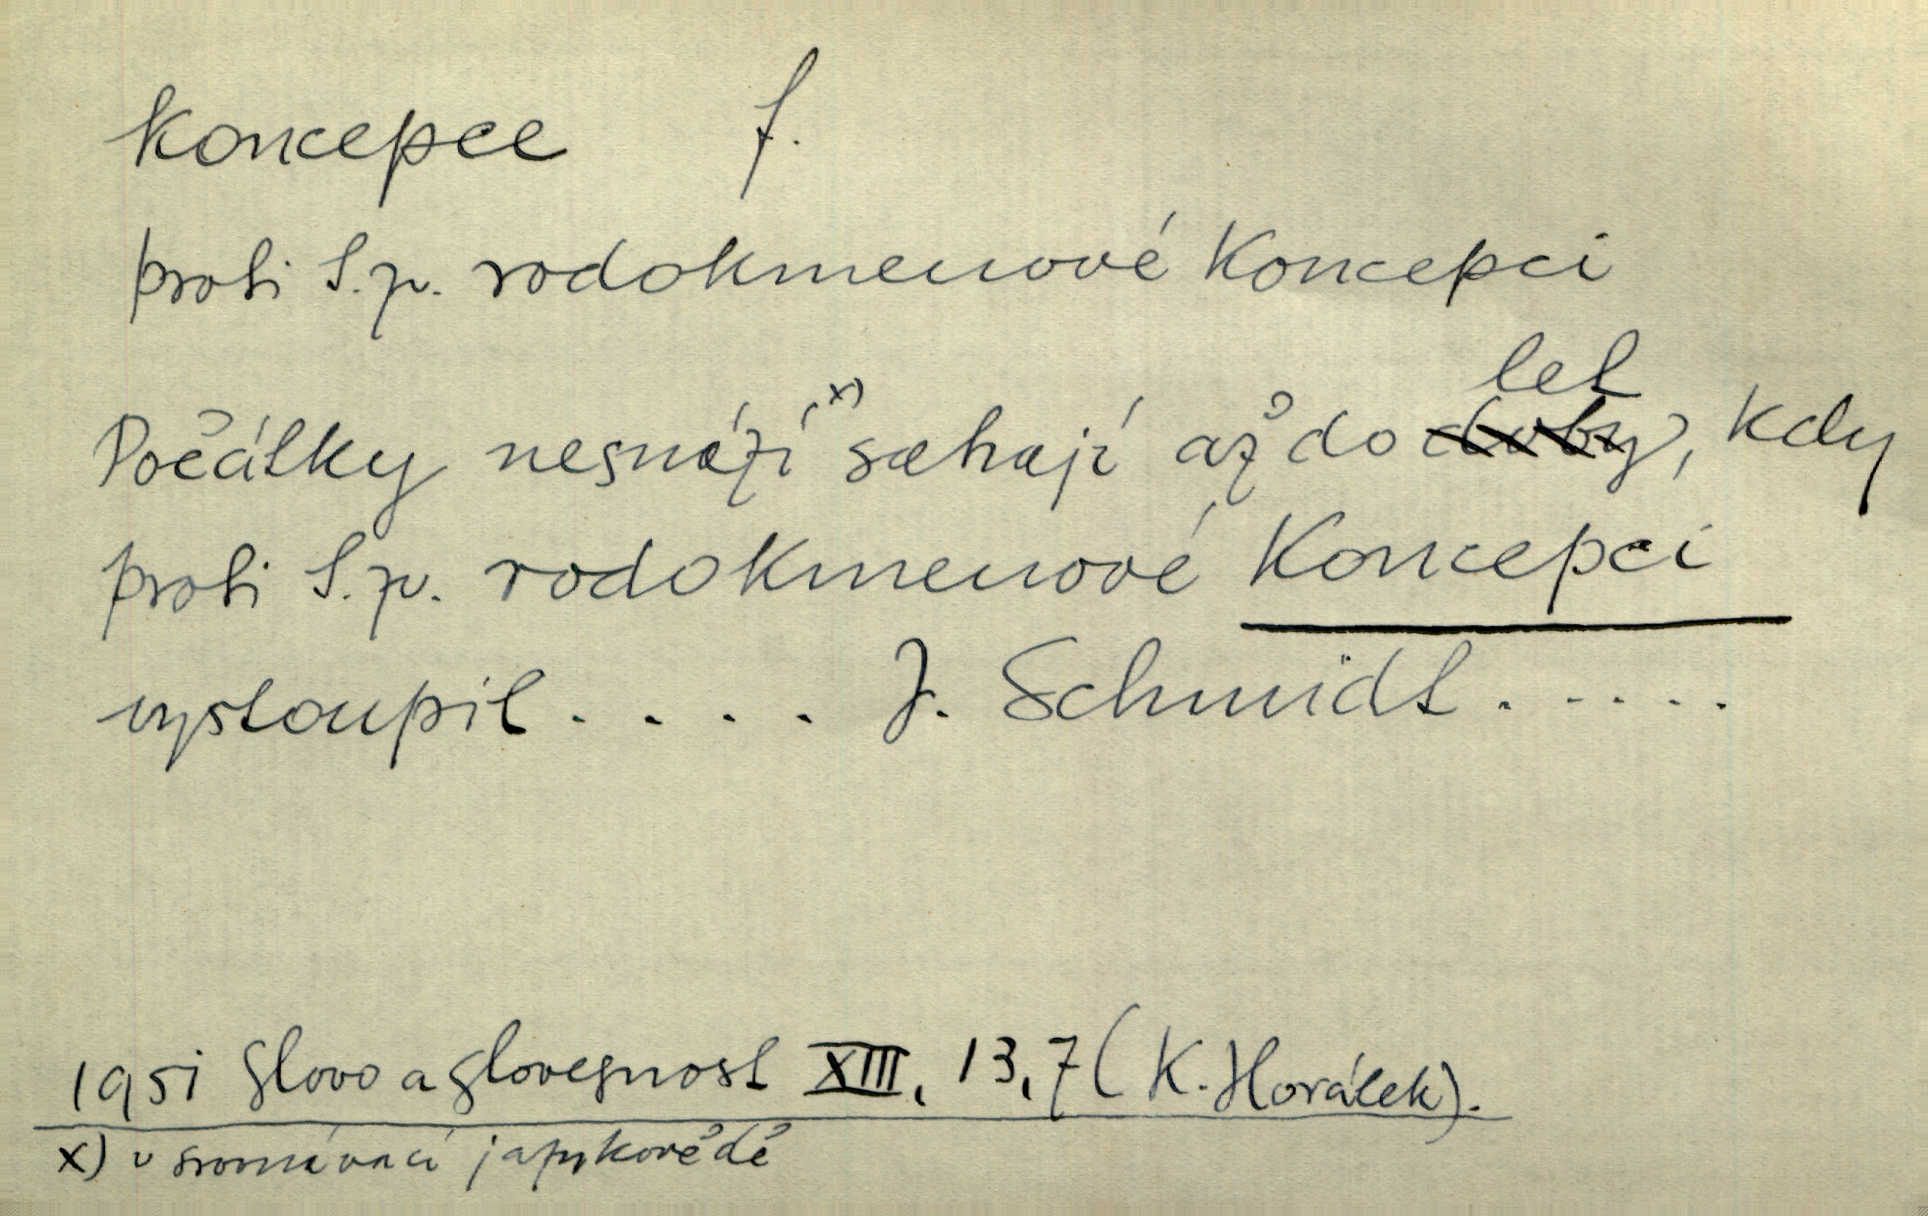 koncepce f.
proti t.zv. rodokmenové koncepci
Počátky nesnází x) sahají až do let, kdy
proti t.zv. rodokmenové koncepci
vystoupil . . . . J. Schmidt . . . . .
1951 Slovo a slovesnost XIII, 13,7 (K. Horálek).
x) v srovnávací jazykovědě